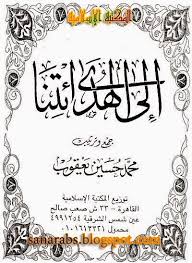 المكتبة الإسلامية
إلى الهدى ائتنا
جمع وترتيب
محمد حسين يعقوب
توزيع المكتبة الإسلامية
القاهرة - ٣٣ ش صعب صالح
عين شمس الشرقية ٤٩٩١٢٥٤
محمول :
sanarabs.blogspot.com